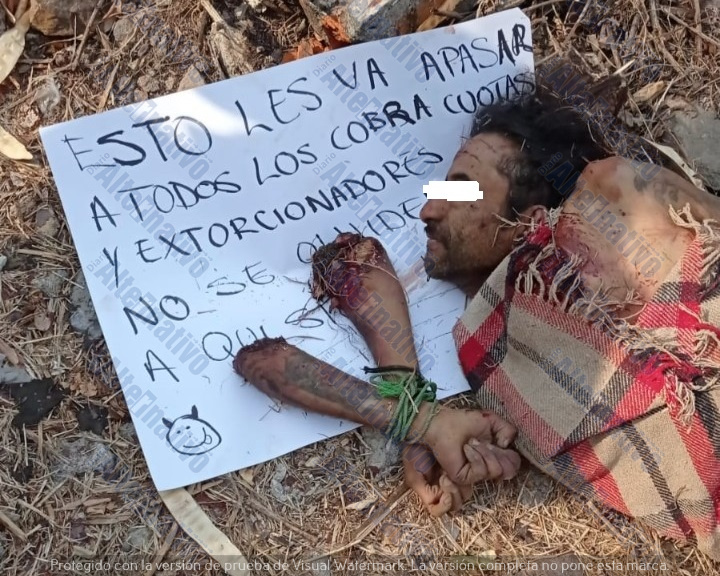 ESTO LES VA APASAR
A TODOS LOS COBRA CUOTAS
Y EXTORCIONADORES
NO SE OLVIDE
A QUI
Diario
AlterNativo
Protegido con la versión de prueba de Visual Watermark. La versión completa no pone esta marca.